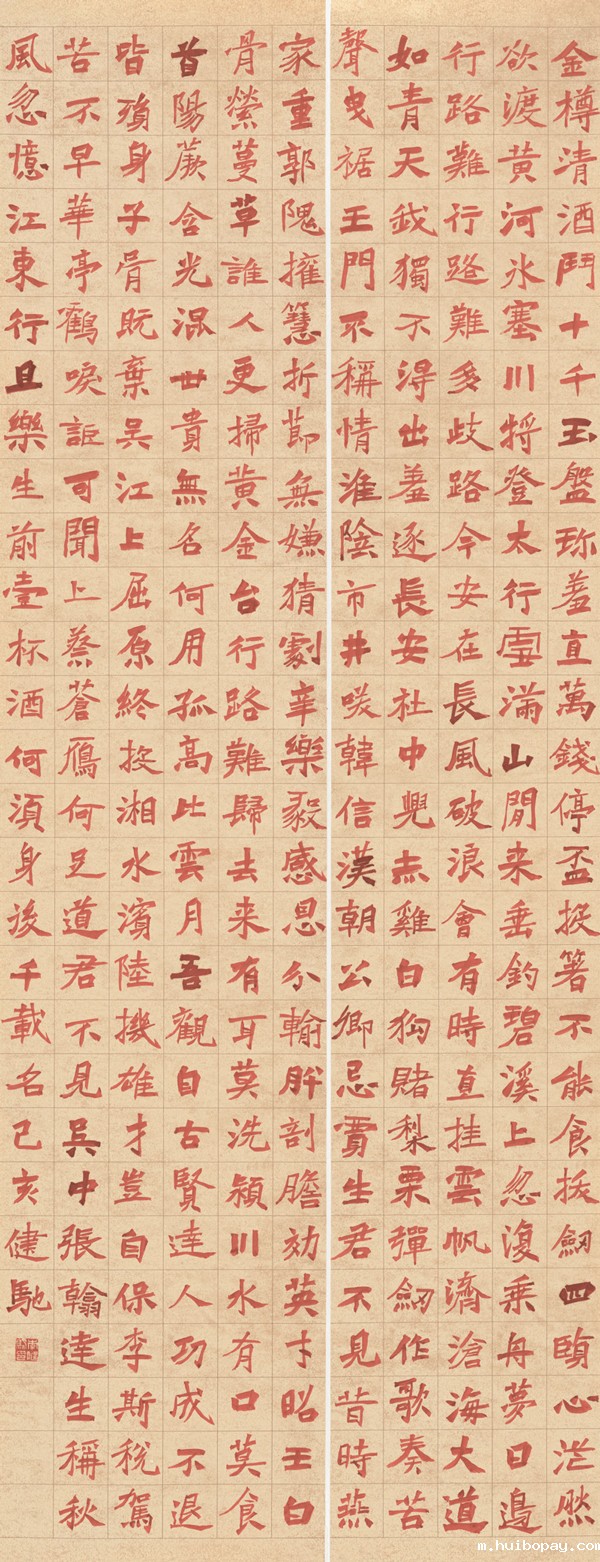 金樽清酒鬥十千玉盤珎羞直萬錢停盃投箸不能食拔劒四顧心茫然
欲渡黃河冰塞川將登太行雪滿山閒来垂釣碧溪上忽復乘舟夢日邊
行路難行路難多歧路今安在長風破浪會有時直挂雲帆濟滄海大道
如青天我獨不得出羞逐長安社中兒赤雞白狗賭梨栗彈劒作歌奏苦
聲曳裾王門不稱情淮陰市井咲韓信漢朝公卿忌賈生君不見昔時燕
家重郭隗擁篲折節無嫌猜劇辛樂毅感恩分輸肝剖膽効英才昭王白
骨縈蔓草誰人更掃黃金台行路難歸去来有耳莫洗潁川水有口莫食
首陽蕨含光混世貴無名何用孤高比雲月吾觀自古賢達人功成不退
皆殞身子胥既棄吳江上屈原終投湘水濱陸機雄才豈自保李斯稅駕
苦不早華亭鶴唳詎可聞上蔡蒼鷹何足道君不見吳中張翰達生稱秋
風忽憶江東行且樂生前壹杯酒何須身後千載名己亥健馳
m.huibopay.com